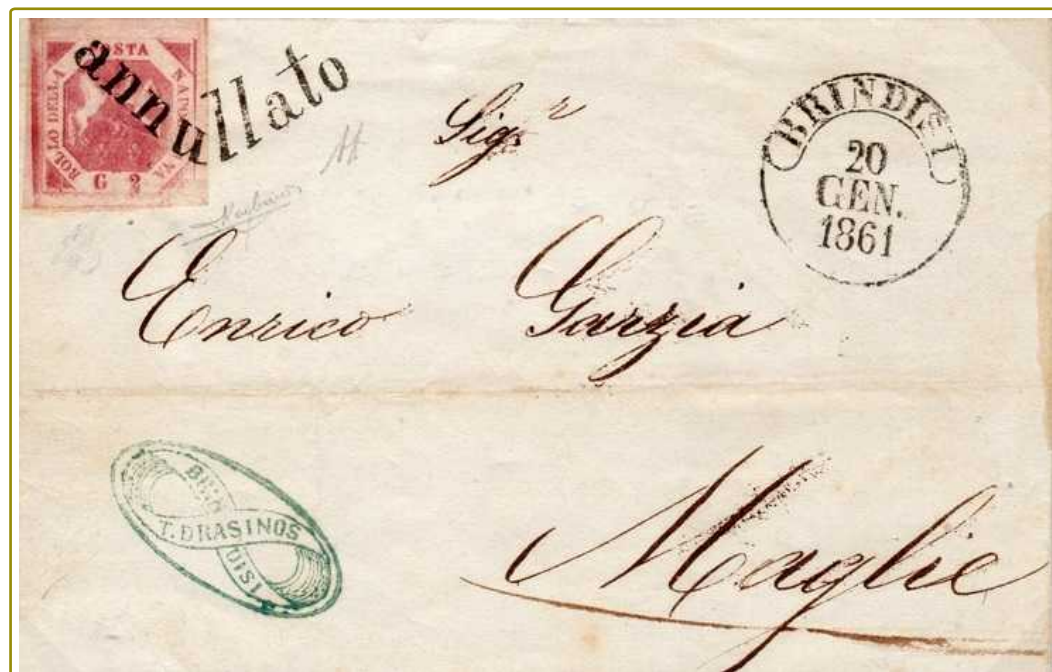 BOLLO DELLA POSTA NAPOLETANA
G 2
annullato
BRINDISI
20
GEN.
1861
Sigr
Enrico Garzia
BRINDISI
T. DRASINOS
Maglie